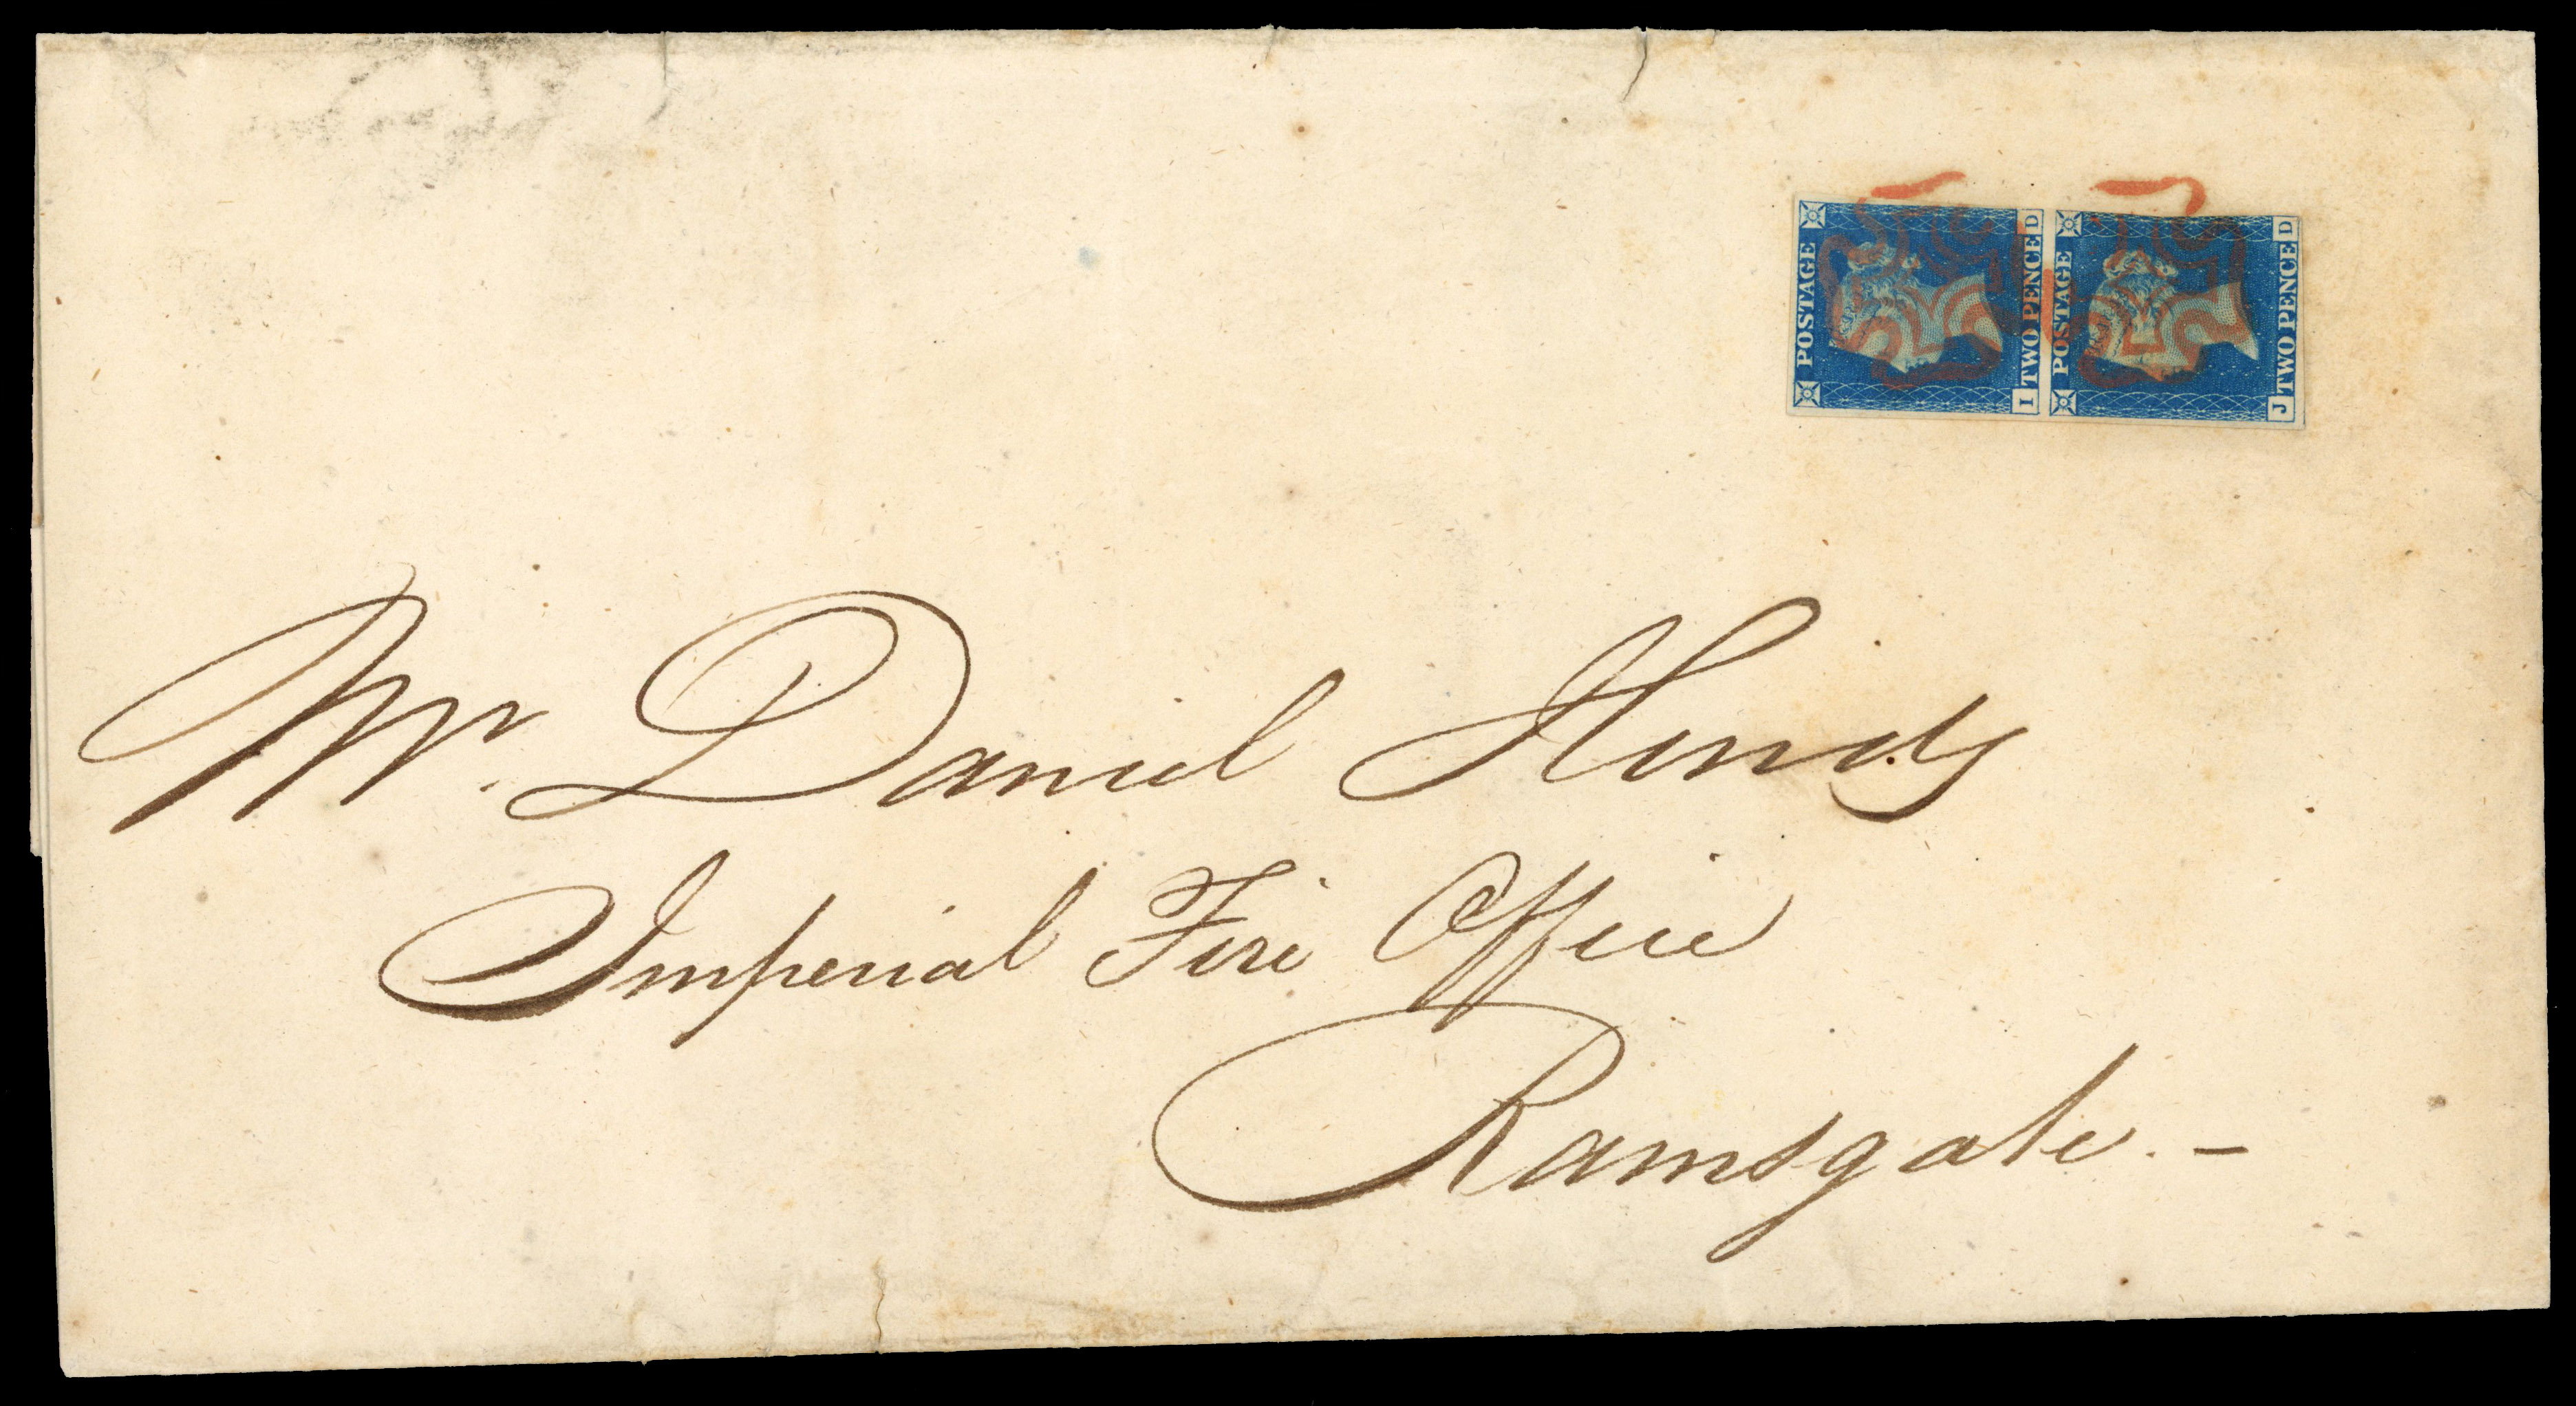 POSTAGE
TWO PENCE
I D
POSTAGE
TWO PENCE
J D
Mr. Daniel Hinds
Imperial Fire Office
Ramsgate. -